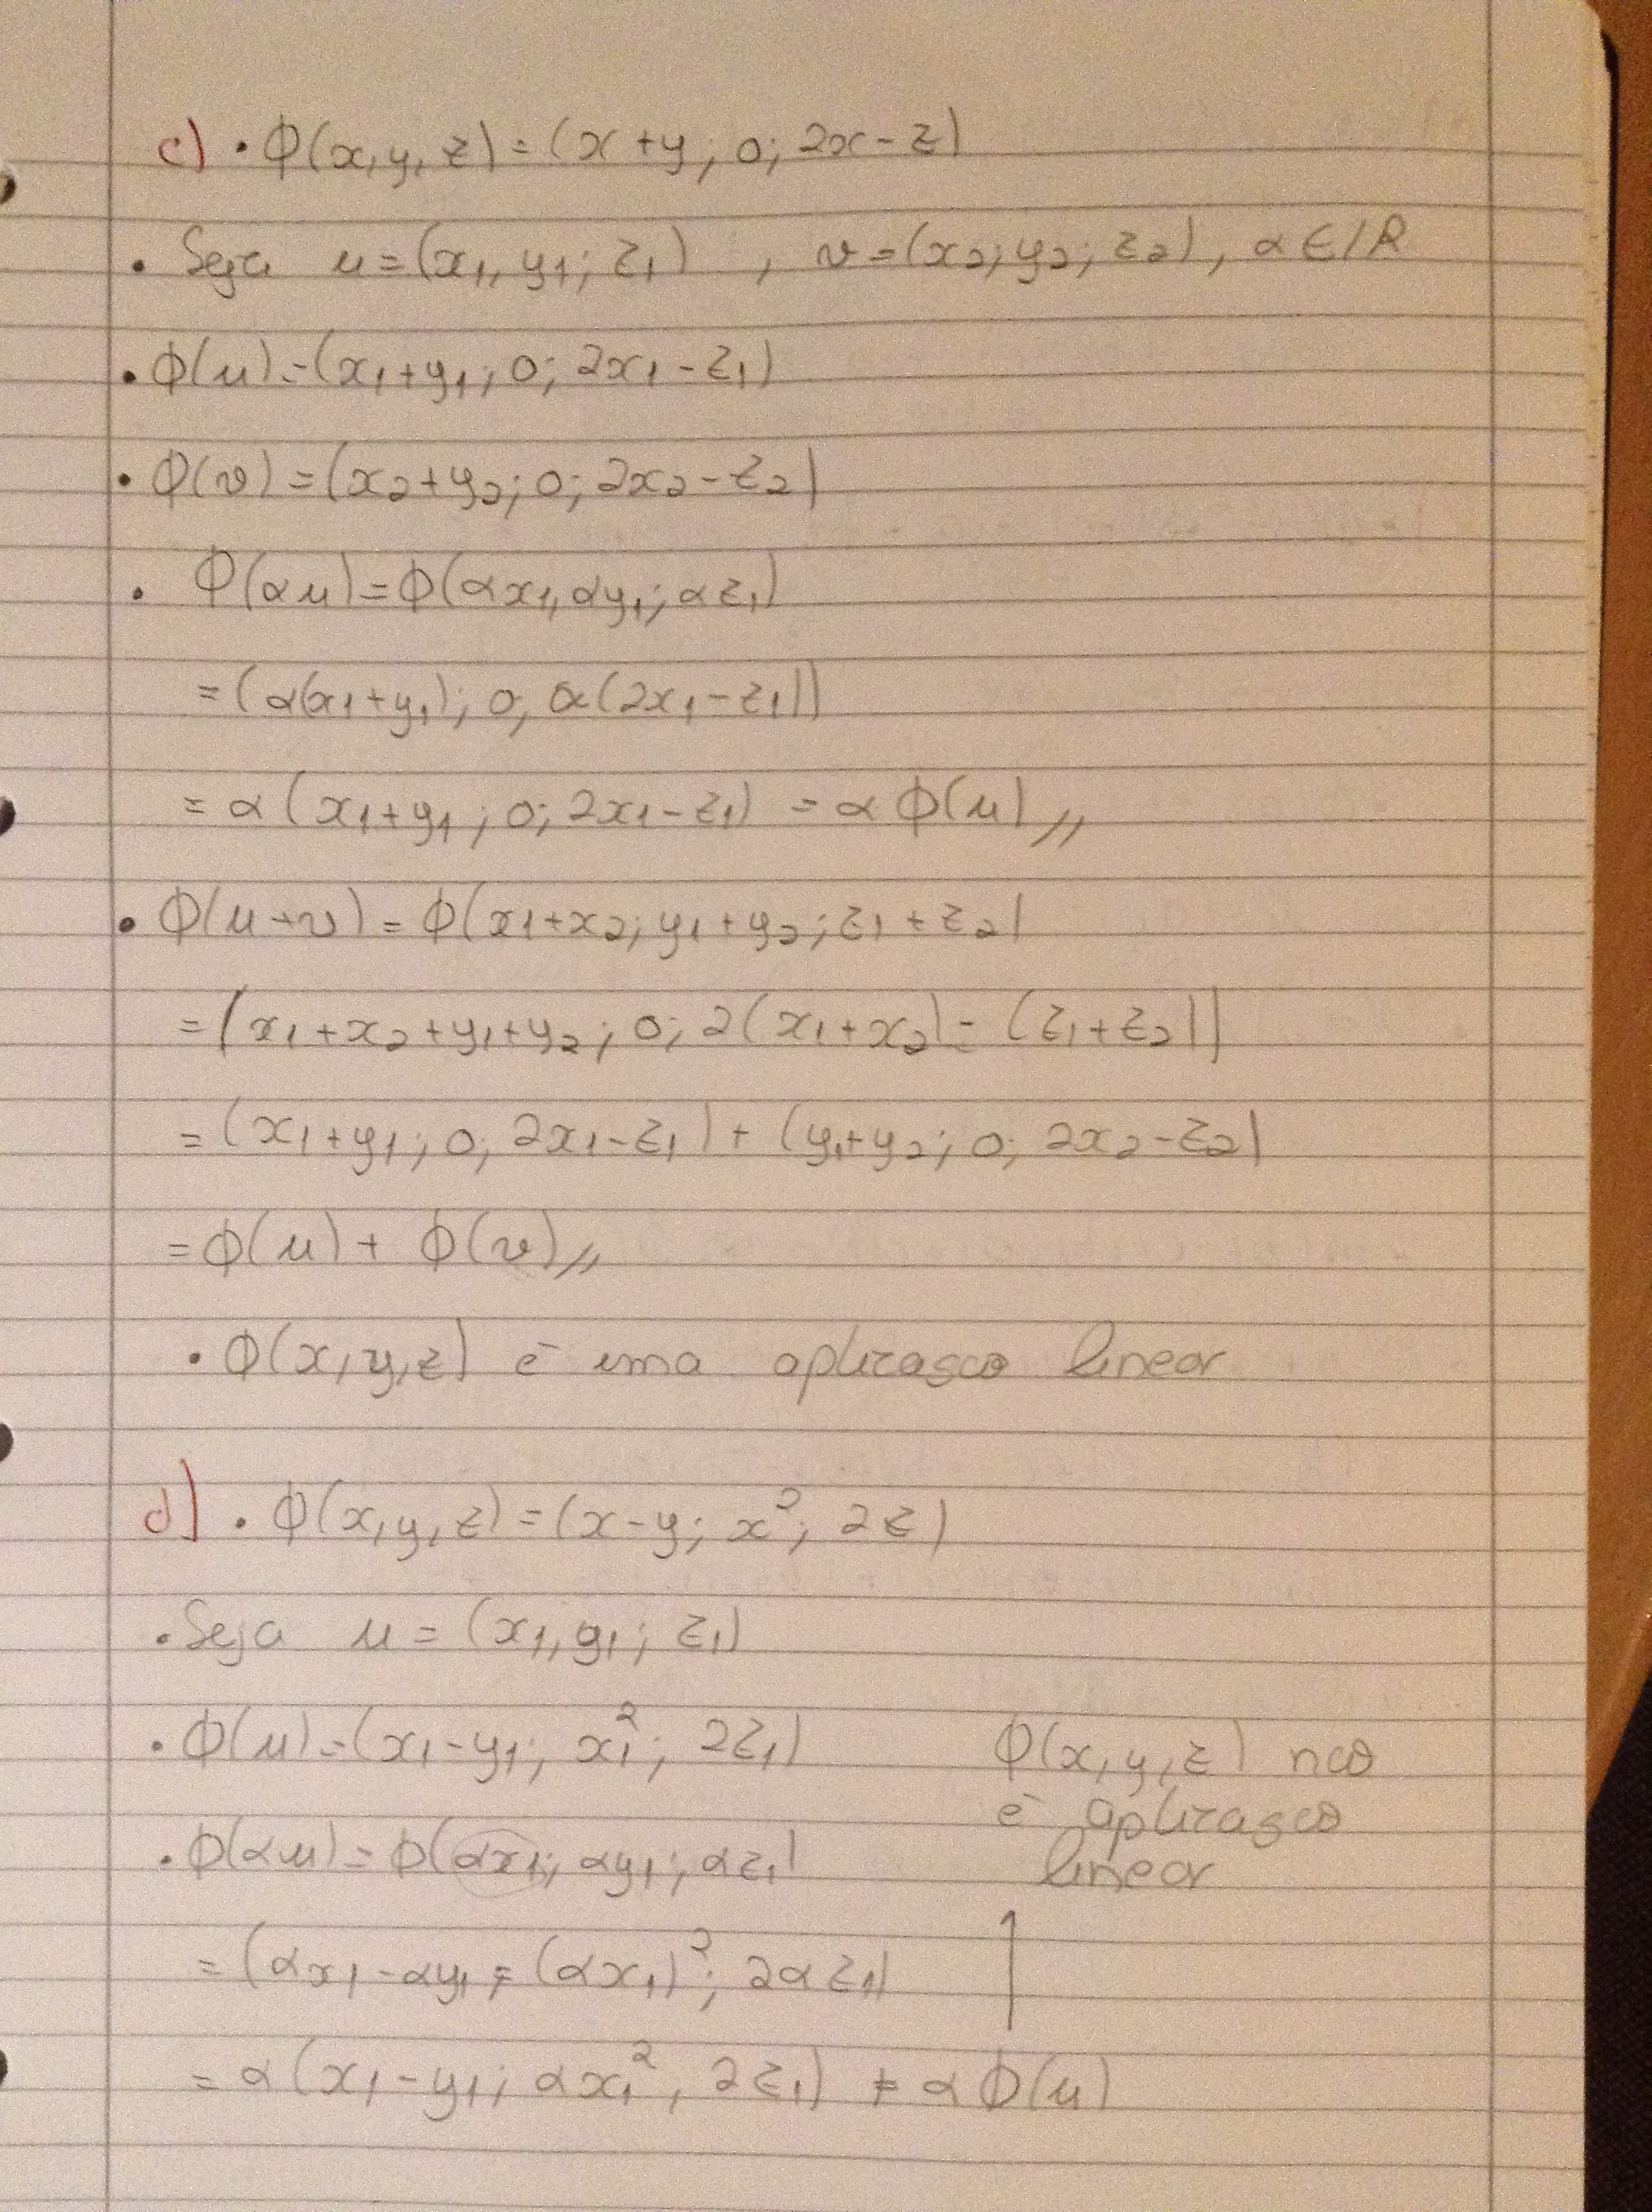 c) • Φ(x,y,z)=(x+y; 0; 2x-z)
• Seja u=(x₁,y₁;z₁) , v=(x₂;y₂;z₂), α∈ℝ
• Φ(u)=(x₁+y₁; 0; 2x₁-z₁)
• Φ(v)=(x₂+y₂; 0; 2x₂-z₂)
• Φ(αu)=Φ(αx₁,αy₁;αz₁)
=(α(x₁+y₁); 0, α(2x₁-z₁))
=α(x₁+y₁; 0; 2x₁-z₁) = αΦ(u)//
• Φ(u+v)=Φ(x₁+x₂; y₁+y₂; z₁+z₂)
=(x₁+x₂+y₁+y₂; 0; 2(x₁+x₂)-(z₁+z₂))
=(x₁+y₁; 0; 2x₁-z₁)+(y₁+y₂; 0; 2x₂-z₂)
=Φ(u)+Φ(v)//
• Φ(x,y,z) é uma aplicação linear
d) • Φ(x,y,z)=(x-y; x²; 2z)
• Seja u=(x₁,y₁;z₁)
• Φ(u)=(x₁-y₁; x₁²; 2z₁)
• Φ(αu)=Φ(αx₁; αy₁; αz₁)
=(αx₁-αy₁; (αx₁)²; 2αz₁)
=α(x₁-y₁; αx₁², 2z₁) ≠ αΦ(u)
Φ(x,y,z) não
é aplicação
linear
↑